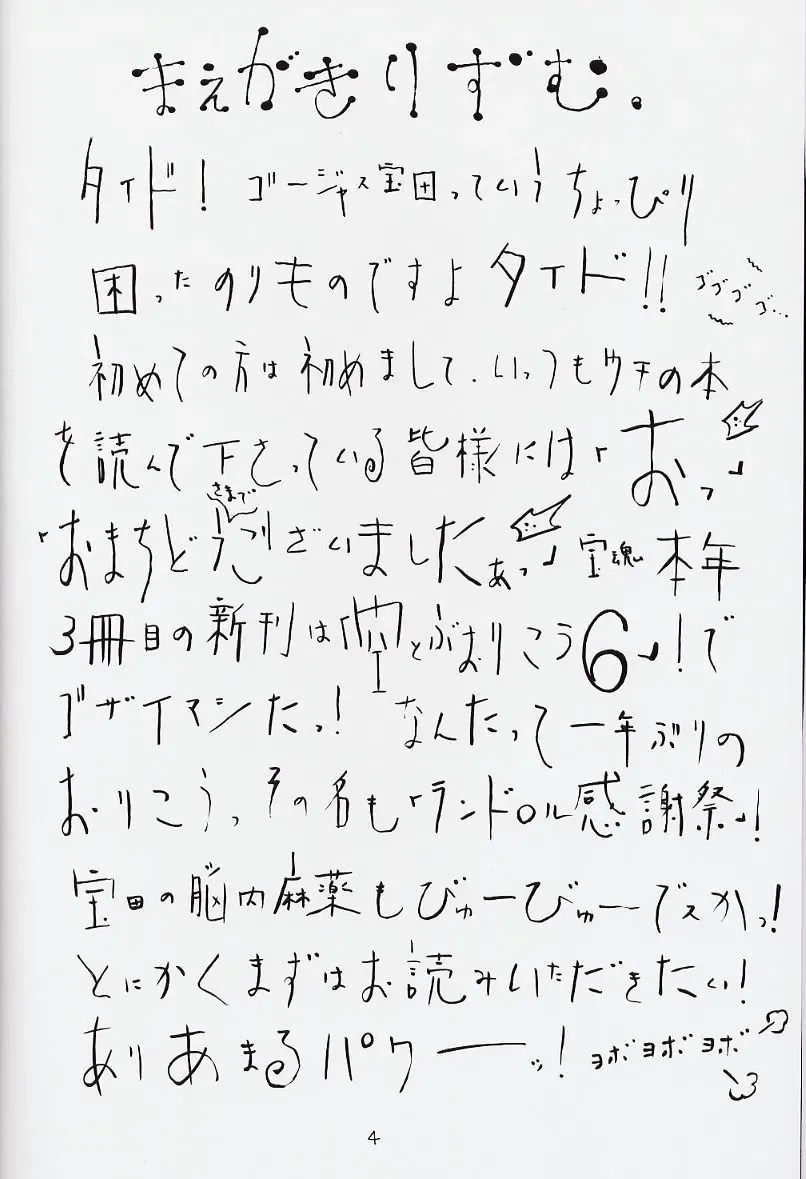 まえがきりずむ。
タイド！ ゴージャス宝田っていう ちょっぴり
困ったのりものですよ タイド!! ゴゴゴゴ…
初めての方は初めまして、いっつもウチの本
を読んで下さっている皆様には「おっ」
さまで
「おまちどうございましたぁっ」宝魂 本年
3冊目の新刊は「空とぶおりこう6」！で
ゴザイマシたっ！ なんたって一年ぶりの
おりこうっ、その名も「ランドロル感謝祭」！
宝田の脳内麻薬もびゅーびゅーでスかっ！
とにかくまずはお読みいただきたい！
ありあまるパワーーッ！ ヨボヨボヨボ
4